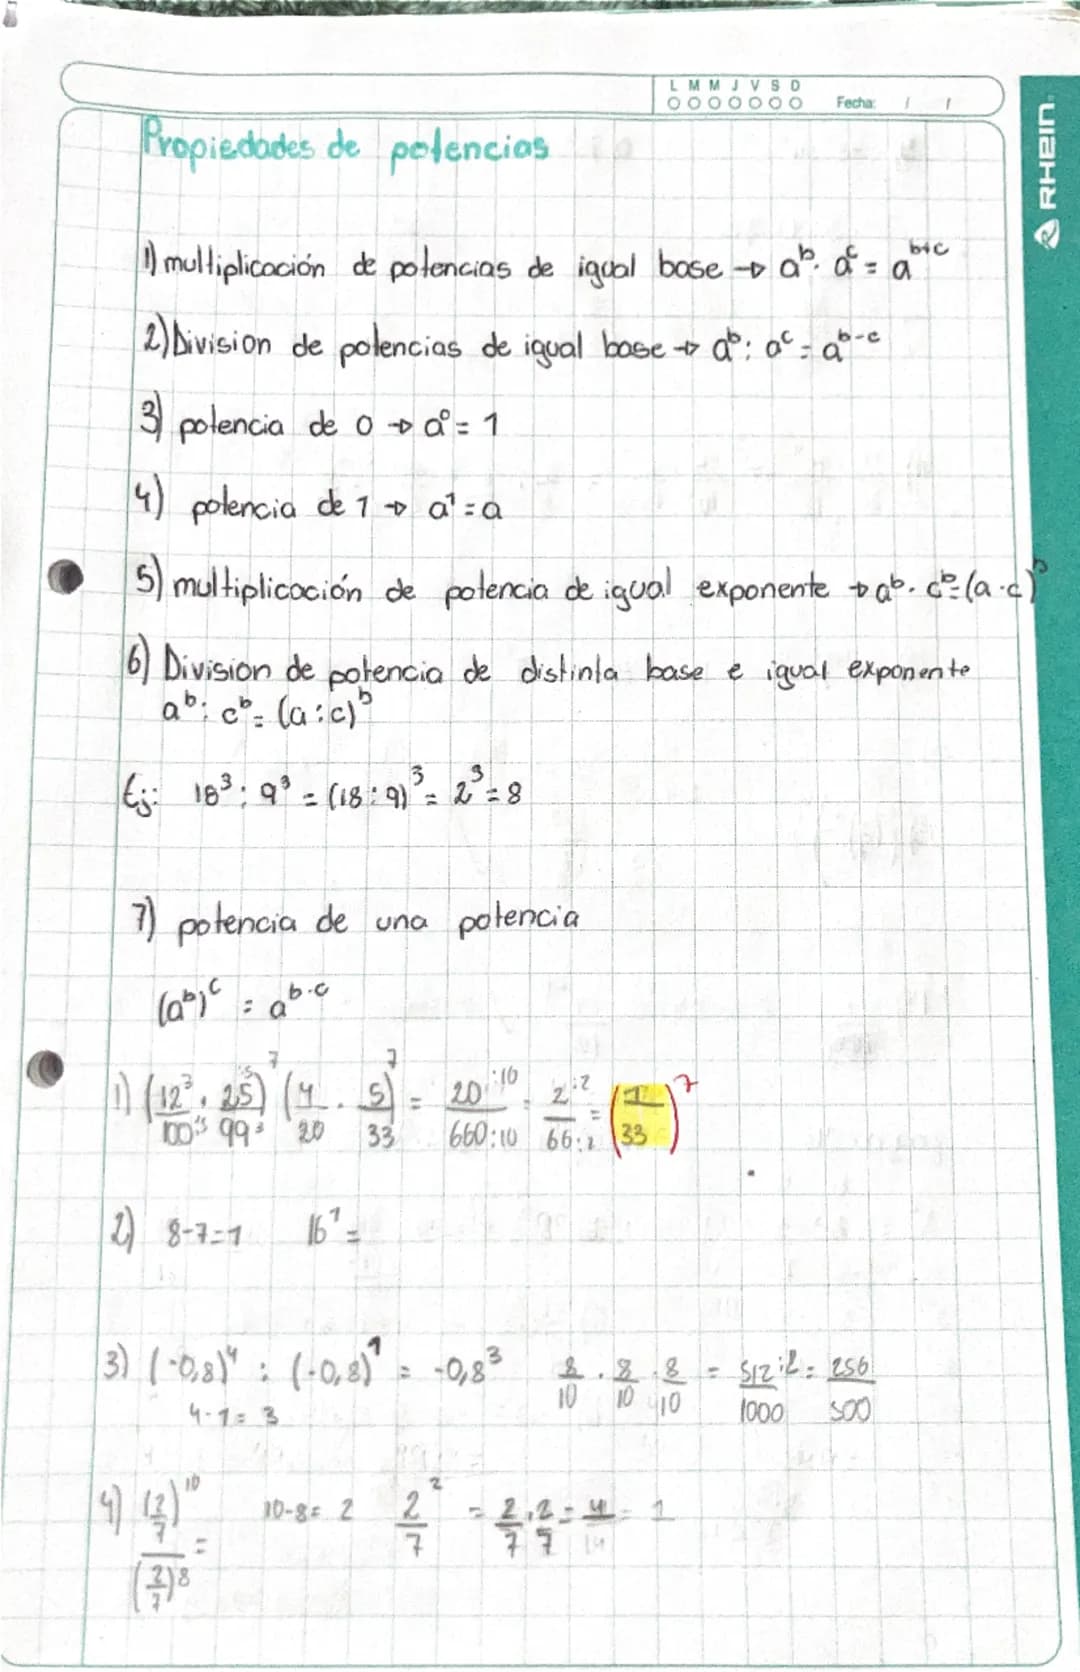 L M M J V S D
Fecha: / /
RHEIN
Propiedades de potencias
1) multiplicación de potencias de igual base → a^b · a^c = a^(b+c)
2) Division de potencias de igual base → a^b : a^c = a^(b-c)
3) potencia de 0 → a^0 = 1
4) potencia de 1 → a^1 = a
5) multiplicación de potencia de igual exponente → a^b · c^b = (a·c)^b
6) Division de potencia de distinta base e igual exponente
a^b : c^b = (a:c)^b
Ej: 18^3 : 9^3 = (18:9)^3 = 2^3 = 8
7) potencia de una potencia
(a^b)^c = a^(b·c)
1) (12^:3/100^:5 · 25^:5/99^:3)^7 (4/20 · 5/33)^7 = 20:10/660:10 = 2:2/66:2 = (1/33)^7
2) 8-7=1 16^1 =
3) (-0,8)^4 : (-0,8)^1 = -0,8^3 8/10 · 8/10 · 8/10 = 512:2/1000 = 256/500
4-1=3
4) (2/7)^10 / (2/7)^8 = 10-8=2 2/7^2 = 2/7 · 2/7 = 4/14 = 1